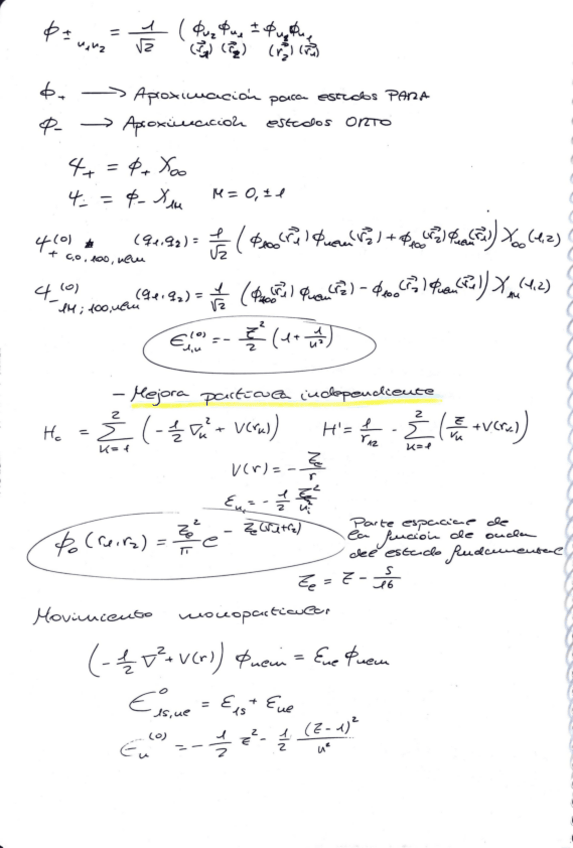 ϕ±ᵤ₁ᵤ₂ = 1/√2 (ϕᵤ₂(r⃗₁) ϕᵤ₁(r⃗₂) ± ϕᵤ₂(r⃗₂) ϕᵤ₁(r⃗₁)
ϕ₊ → Aproximación para estados PARA
ϕ₋ → Aproximación estados ORTO
Ψ₊ = ϕ₊ χ₀₀
Ψ₋ = ϕ₋ χ₁M M = 0, ±1
Ψ₊⁽⁰⁾ 0,0,100,nem (q₁,q₂) = 1/√2 (ϕ₁₀₀(r⃗₁) ϕnem(r⃗₂) + ϕ₁₀₀(r⃗₂) ϕnem(r⃗₁)) χ₀₀(1,2)
Ψ₋⁽⁰⁾ 1M; 100,nem (q₁,q₂) = 1/√2 (ϕ₁₀₀(r⃗₁) ϕnem(r⃗₂) - ϕ₁₀₀(r⃗₂) ϕnem(r⃗₁)) χ₁M(1,2)
Є₁,ₙ⁽⁰⁾ = - Z²/2 (1 + 1/n²)
- Mejora partícula independiente
H₀ = Σ_{k=1}^{2} (-1/2 ∇ₖ² + V(rₖ)) H' = 1/r₁₂ - Σ_{k=1}^{2} (Z/rₖ + V(rₖ))
V(r) = - Zₑ/r
Ɛₙᵢ = - 1/2 Zₑ²/nᵢ²
ϕ₀(r₁,r₂) = Zₑ³/π e^{-Zₑ(r₁+r₂)} Parte espacial de
la función de onda
del estado fundamental
Zₑ = Z - 5/16
Movimiento monoparticular
(-1/2 ∇² + V(r)) ϕnem = Ɛne ϕnem
Є⁰₁ₛ,ne = Ɛ₁ₛ + Ɛne
Єₙ⁽⁰⁾ = - 1/2 Z² - 1/2 (Z-1)²/n²